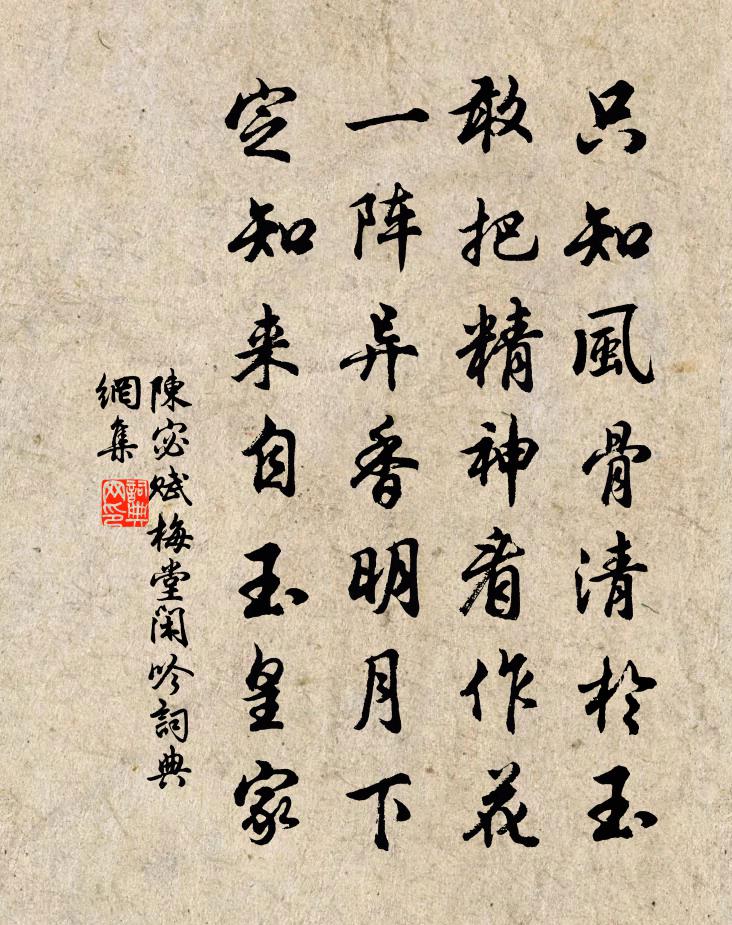 只知風骨清於玉
敢把精神看作花
一阵异香明月下
定知来自玉皇家
陳宓赋梅堂闲吟詞典
網集
詞典
网印